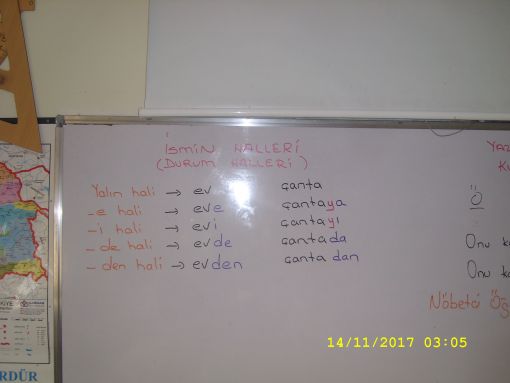 İSMİN HALLERİ
(DURUM HALLERİ)
Yalın hali → ev çanta
-e hali → eve çantaya
-i hali → evi çantayı
-de hali → evde çantada
-den hali → evden çantadan
YAZ
Ö
Onu
Onu
Nöbetçi Öğ
14/11/2017 03:05
RDÜR